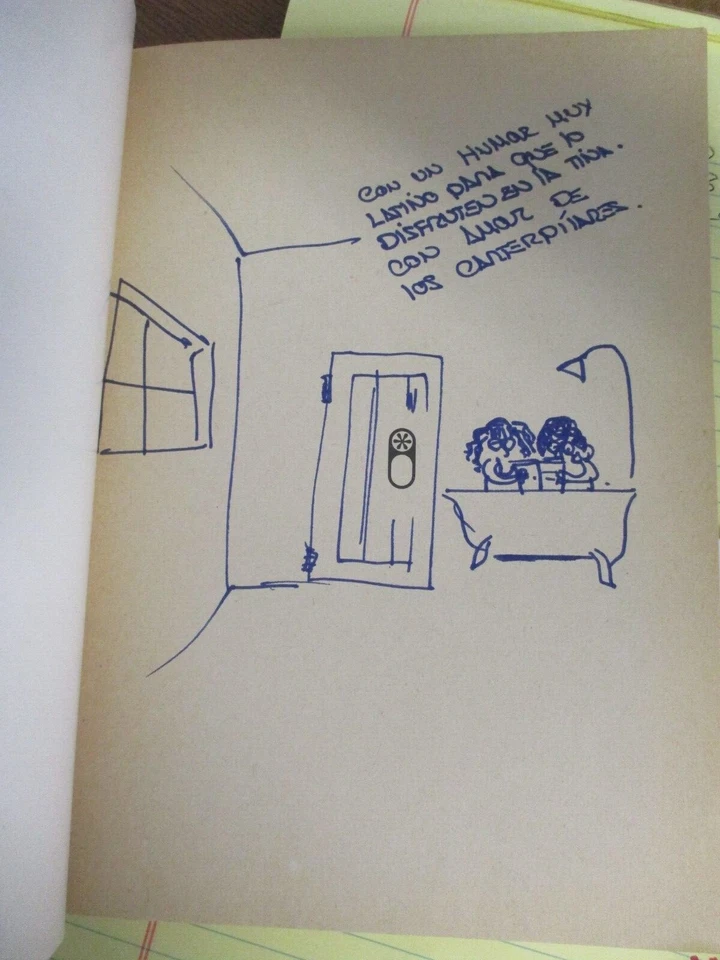 CON UN HUMOR MUY
LATINO PARA QUE lO
DISFRUTEN EN lA TINA.
CON AMOR DE
lOS CANTERPIlARES.